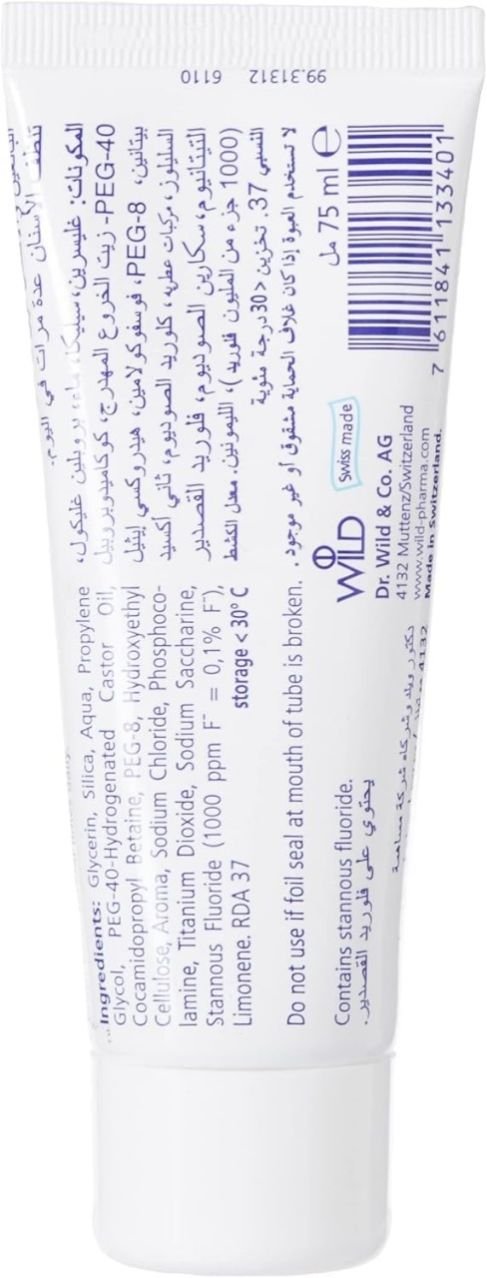 99.31312 6110
Ingredients: Glycerin, Silica, Aqua, Propylene
Glycol, PEG-40-Hydrogenated Castor Oil,
Cocamidopropyl Betaine, PEG-8, Hydroxyethyl
Cellulose, Aroma, Sodium Chloride, Phosphoco-
lamine, Titanium Dioxide, Sodium Saccharine,
Stannous Fluoride (1000 ppm F⁻ = 0,1% F⁻),
Limonene. RDA 37
storage < 30° C
Do not use if foil seal at mouth of tube is broken.
Contains stannous fluoride.
يحتوي على فلوريد القصدير.
الأسنان عدة مرات في اليوم.
المكونات: غليسرين، سيليكا، ماء، بروبلين غليكول،
PEG-40- زيت الخروع المهدرج، كوكاميدوبروبيل
بيتائين، PEG-8، فوسفوكولامين، هيدروكسي إيثيل
السليلوز، مركبات عطرية، كلوريد الصوديوم، ثاني أكسيد
التيتانيوم، سكارين الصوديوم، فلوريد القصدير
(1000 جزء من المليون فلوريد)، الليمونين. معدل الكشط
النسبي 37. تخزين <30 درجة مئوية
لا تستخدم العبوة إذا كان غلاف الحماية مشقوق أو غير موجود.
75 ml ℮ مل
WILD
Swiss made
Dr. Wild & Co. AG
4132 Muttenz/Switzerland
www.wild-pharma.com
Made in Switzerland.
دكتور ويلد وشركاه شركة مساهمة
4132
7 611841 133401